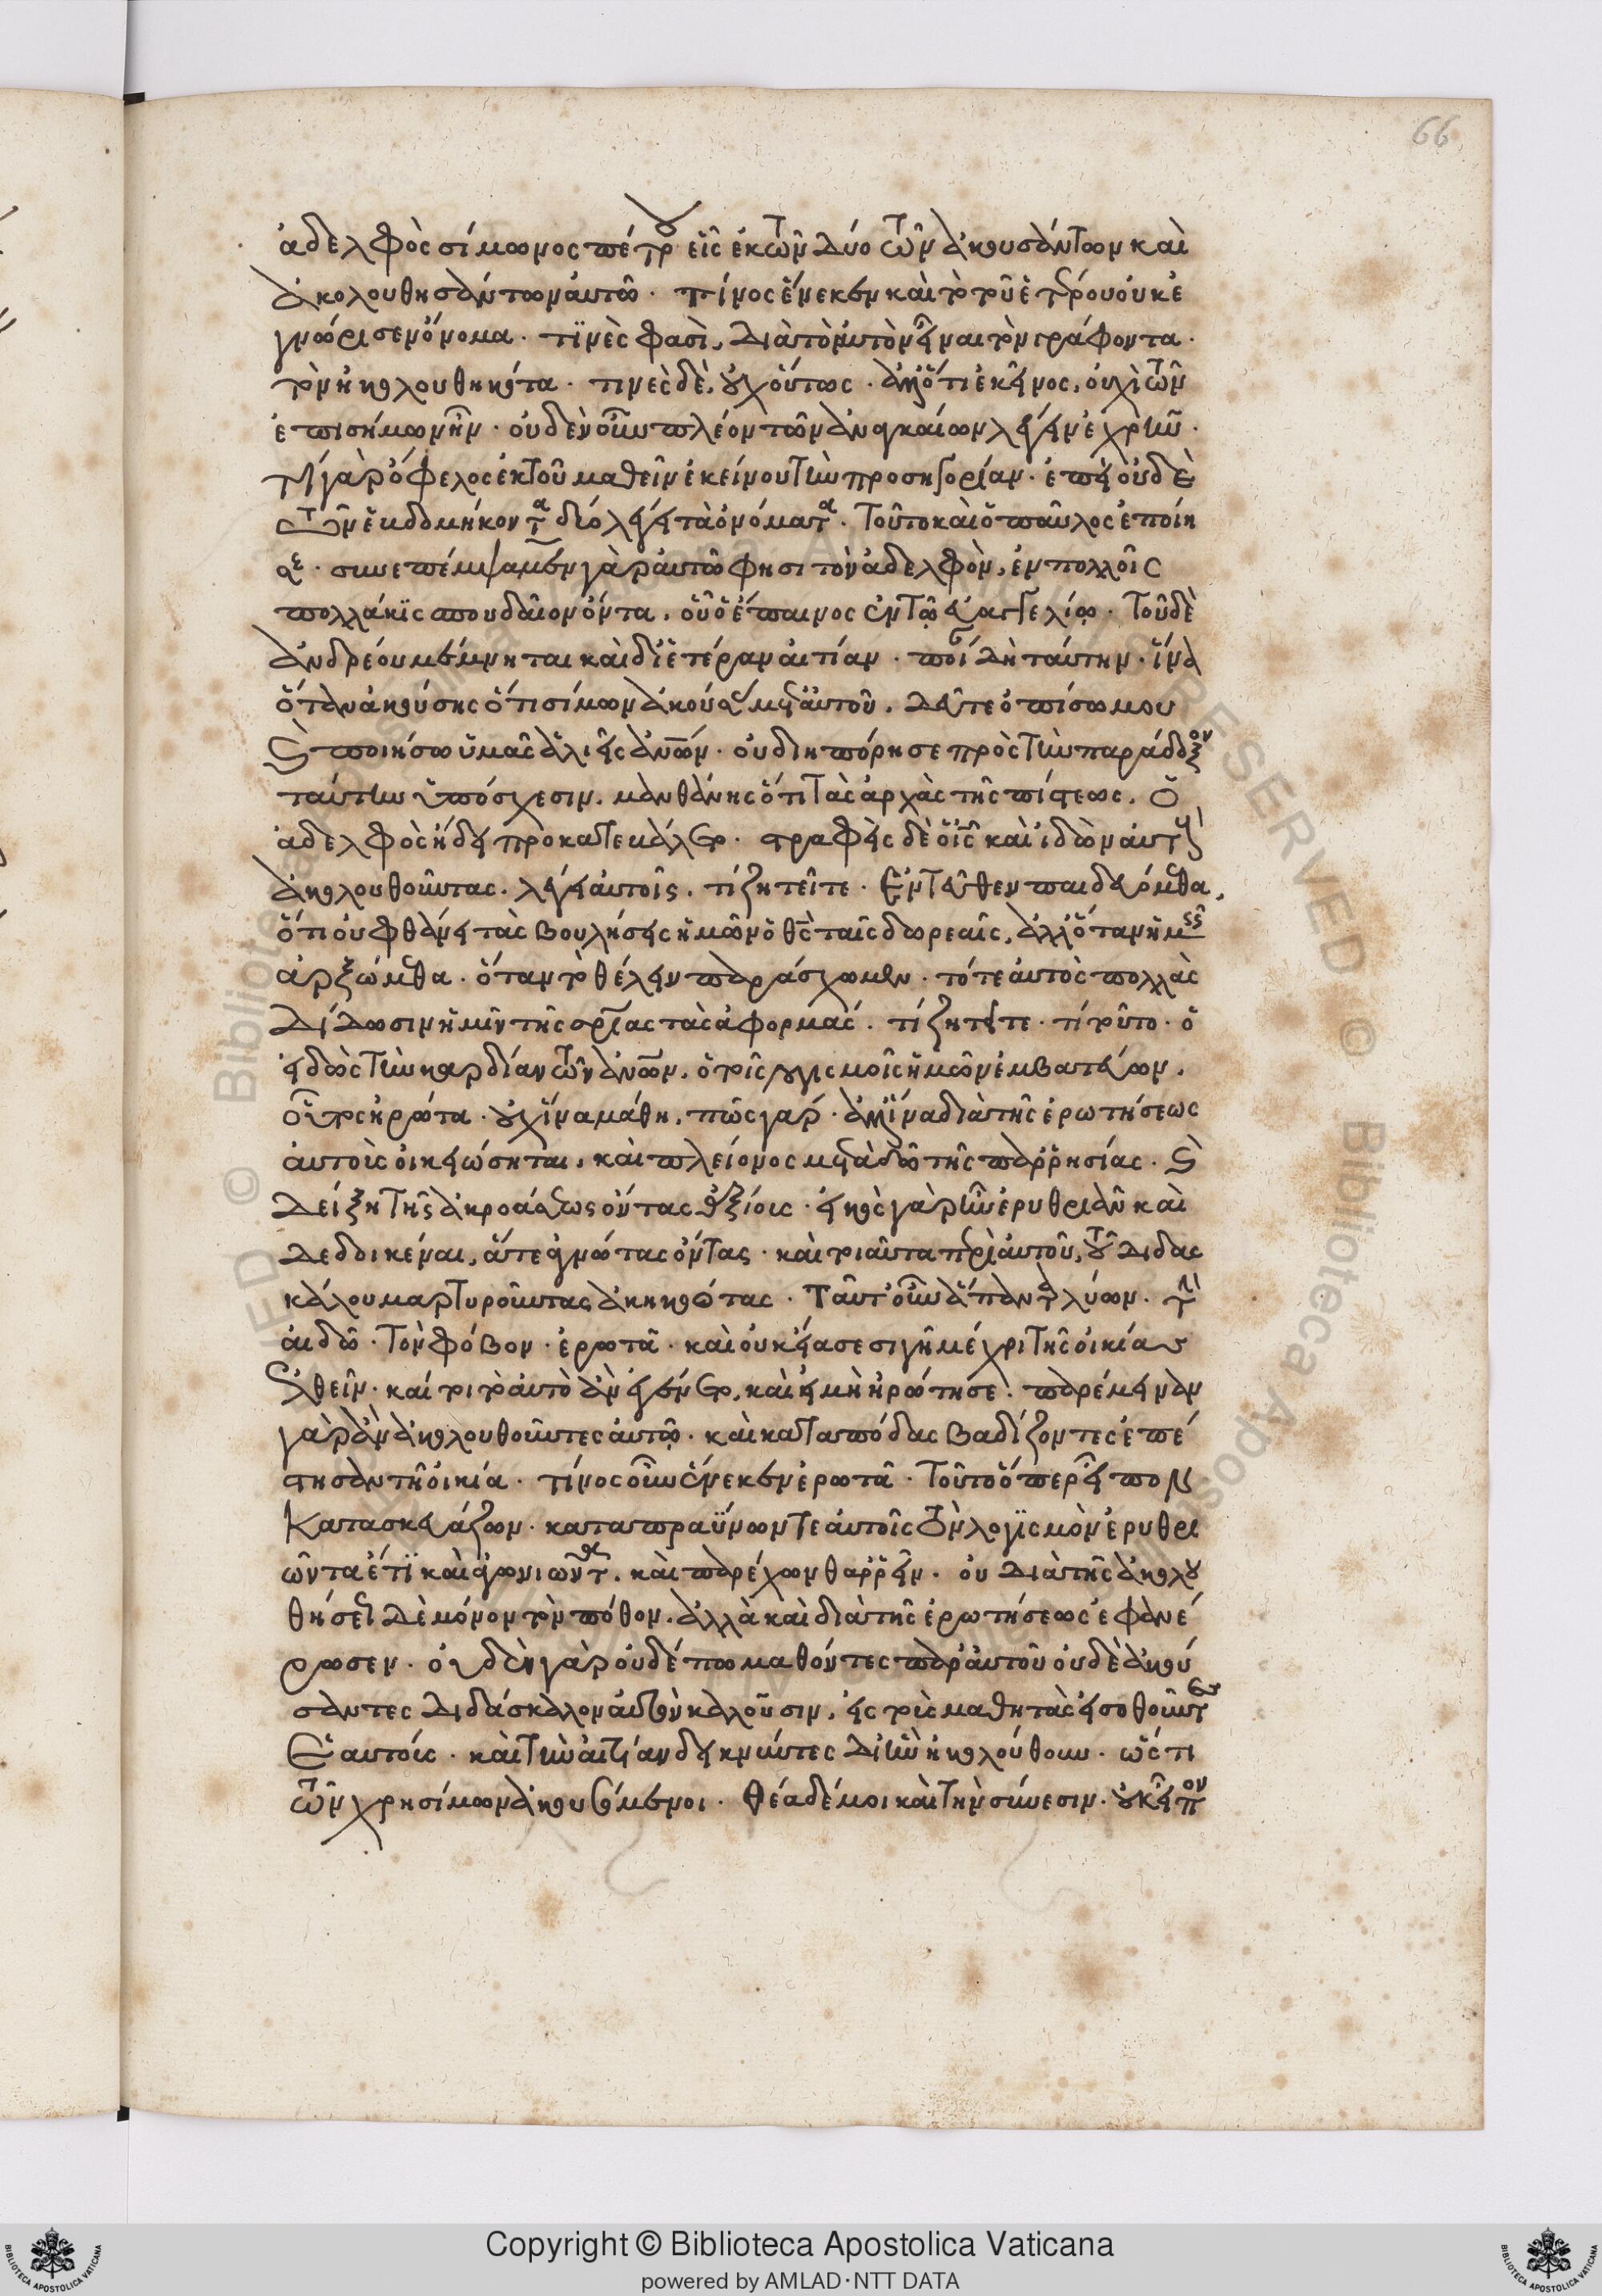 66
ἀδελφὸς σίμωνος πέτρου εἷς ἐκ τῶν δύο τῶν ἀκουσάντων καὶ
ἀκολουθησάντων αὐτῶ. τίνος ἕνεκεν καὶ τὸ τοῦ ἑτέρου οὐκ ἐ
γνώρισεν ὄνομα. τινὲς φασὶ, διὰ τὸ αὐτὸν εἶναι τὸν γράφοντα.
τὸν ἠκολουθηκότα. τινὲς δὲ, οὐχ οὕτως. ἀλλ' ὅτι ἐκεῖνος, οὐχὶ τῶν
ἐπισήμων ἦν. οὐδὲν οὖν πλέον τῶν ἀναγκαίων λέγειν ἐχρῆν.
τί γὰρ ὄφελος ἐκ τοῦ μαθεῖν ἐκείνου τὴν προσηγορίαν. ἐπεὶ οὐδὲ
τῶν ἑβδομήκοντα δύο λέγει τὰ ὀνόματα. τοῦτο καὶ ὁ παῦλος ἐποίη
σε. συνεπέμψαμεν γὰρ αὐτῶ φησι τὸν ἀδελφὸν, ἐν πολλοῖς
πολλάκις σπουδαῖον ὄντα. οὗ ὁ ἔπαινος ἐν τῷ εὐαγγελίῳ. τοῦ δὲ
ἀνδρέου μέμνηται καὶ δι' ἑτέραν αἰτίαν. ποίαν δὴ ταύτην. ἵνα
ὅταν ἀκούσης ὅτι σίμων ἀκούσας μετ' αὐτοῦ. δεῦτε ὀπίσω μου
καὶ ποιήσω ὑμᾶς ἁλιεῖς ἀνων. οὐ διηπόρησε πρὸς τὴν παράδοξον
ταύτην ὑπόσχεσιν. μανθάνης ὅτι τὰς ἀρχὰς τῆς πίστεως. ὁ
ἀδελφὸς ἤδη προκατεβάλετο. στραφεὶς δὲ ὁ ις καὶ ἰδὼν αὐτοὺς
ἀκολουθοῦντας. λέγει αὐτοῖς. τί ζητεῖτε. ἐντεῦθεν παιδευόμεθα,
ὅτι οὐ φθάνει τὰς βουλήσεις ἡμῶν ὁ θς ταῖς δωρεαῖς, ἀλλ' ὅταν ἡμεῖς
ἀρξώμεθα. ὅταν τὸ θέλειν παράσχωμεν. τότε αὐτὸς πολλὰς
δίδωσιν ἡμῖν τῆς σριας τὰς ἀφορμάς. τί ζητεῖτε. τί τοῦτο. ὁ
εἰδὼς τὴν καρδίαν τῶν ἀνων. ὁ τοῖς λογισμοῖς ἡμῶν ἐμβατεύων.
οὗτος ἠρώτα. οὐχ ἵνα μάθη. πῶς γάρ. ἀλλ' ἵνα διὰ τῆς ἐρωτήσεως
αὐτοὺς οἰκειώσηται. καὶ πλείονος μεταδῶ τῆς παρρησίας. καὶ
δείξη τῆς ἀκροάσεως ὄντας ἀξίους. εἰκὸς γὰρ ἦν ἐρυθριᾶν καὶ
δεδοικέναι, ἅτε ἀγνώτας ὄντας. καὶ τοιαῦτα περὶ αὐτοῦ, τοῦ διδασ
κάλου μαρτυροῦντος ἀκηκοότας. ταῦτ' οὖν ἅπαντα λύων. τὴν
αἰδῶ. τὸν φόβον. ἐρωτᾶ. καὶ οὐκ εἴασε σιγῆ μέχρι τῆς οἰκίας
ἐλθεῖν. καίτοι τὸ αὐτὸ ἂν ἐγένετο, καὶ εἰ μὴ ἠρώτησε. παρέμειναν
γὰρ ἂν ἀκολουθοῦντες αὐτῷ. καὶ κατὰ πόδας βαδίζοντες ἐπέ
στησαν τῆ οἰκία. τίνος οὖν ἕνεκεν ἐρωτᾶ. τοῦτο ὅπερ εἶπον
κατασκευάζων. καταπραΰνων τε αὐτοῖς τὸν λογισμὸν ἐρυθρι
ῶντα ἔτι καὶ ἀγωνιῶντα. καὶ παρέχων θαρρεῖν. οὐ διὰ τῆς ἀκολου
θήσεως δὲ μόνον τὸν πόθον. ἀλλὰ καὶ διὰ τῆς ἐρωτήσεως ἐφανέ
ρωσεν. οὐδὲν γὰρ οὐδέπω μαθόντες παρ' αὐτοῦ οὐδὲ ἀκού
σαντες διδάσκαλον αὐτὸν καλοῦσιν. εἰς τοὺς μαθητὰς εἰσωθοῦντες
ἑαυτούς. καὶ τὴν αἰτίαν δεικνύντες δι' ἣν ἠκολούθουν. ὥς τι
τῶν χρησίμων ἀκουσόμενοι. θέα δέ μοι καὶ τὴν σύνεσιν. οὐκ εἶπον
Copyright © Biblioteca Apostolica Vaticana
powered by AMLAD·NTT DATA